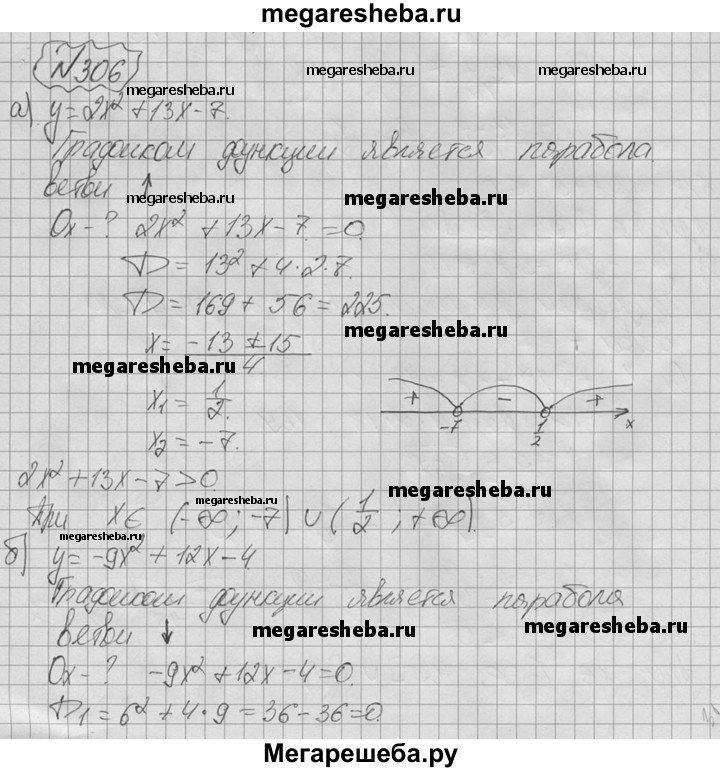 megaresheba.ru
N306
megaresheba.ru megaresheba.ru
megaresheba.ru
а) y=2x²+13x-7.
Графиком функции является порабола
ветви ↑
megaresheba.ru megaresheba.ru
Ox-? 2x²+13x-7=0.
D=13²+4·2·7.
D=169+56=225.
megaresheba.ru
x=\frac{-13±15}{4}
megaresheba.ru
x₁=\frac{1}{2}.
x₂=-7.
+ - +
-7 \frac{1}{2} x
2x²+13x-7>0.
megaresheba.ru megaresheba.ru
При x∈(-∞;-7)∪(\frac{1}{2};+∞).
megaresheba.ru
б) y=-9x²+12x-4
Графиком функции является порабола
ветви ↓
megaresheba.ru megaresheba.ru
Ox-? -9x²+12x-4=0.
D₁=6²+4·9=36-36=0.
Мегарешеба.ру